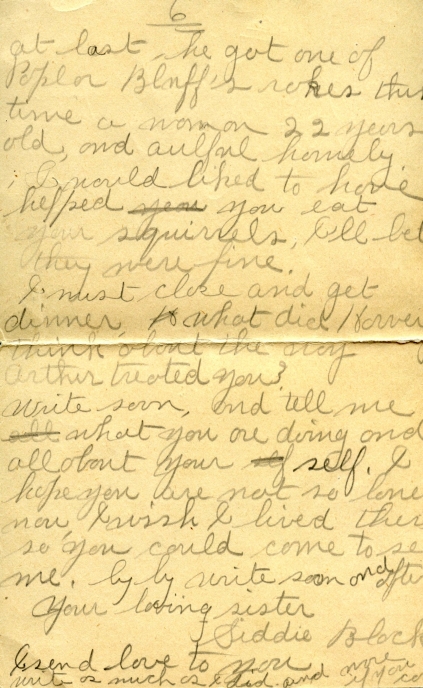 6
at last, he got one of
Poplor Bluff's rakes this
time a woman 22 years
old, and aulful homely
I would liked to have
helped you you eat
your squirrels, I'll bet
they were fine.
I must close and get
dinner, what did Harvey
think about the way
Arthur treated you?
Write soon, and tell me
all what you are doing and
all about your self. I
hope you are not so lone
now I wish I lived there
so you could come to se
me. by by write soon and often
Your loving sister
Siddie Block
I send love to you
write as much as I did and more if you